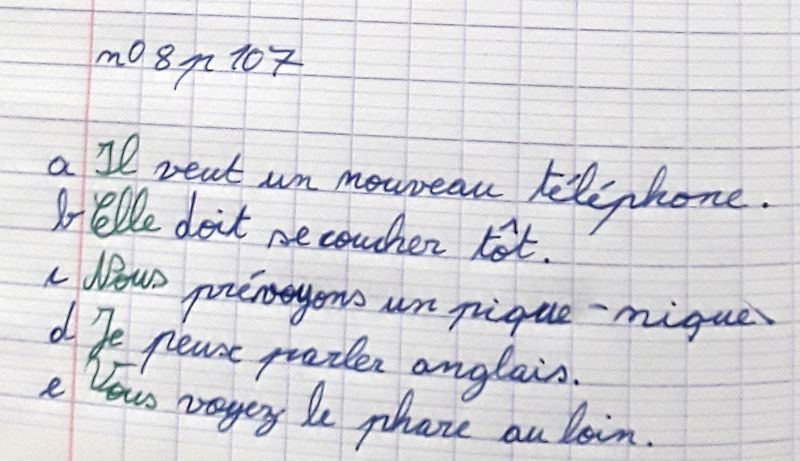 n° 8 p 107
a Il veut un nouveau téléphone.
b Elle doit se coucher tôt.
c Nous prévoyons un pique-nique.
d Je peux parler anglais.
e Vous voyez le phare au loin.